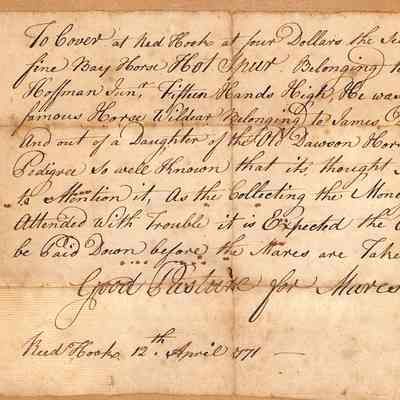 To Cover at Red Hook at four Dollars the
fine Bay Horse Hot Spur. Belonging to
Hoffman Junr. Fifteen Hands High, He was
famous Horse Wildair Belonging to James,
And out of a Daughter of the Old Dawson
Pedigree so well Known that its, thought
to Mention it, As the Collecting the
Attended With Trouble it is Expected the
be Paid Down before the Mares are
Good Pasture for Mares
Reed Hook 12.th April 1771